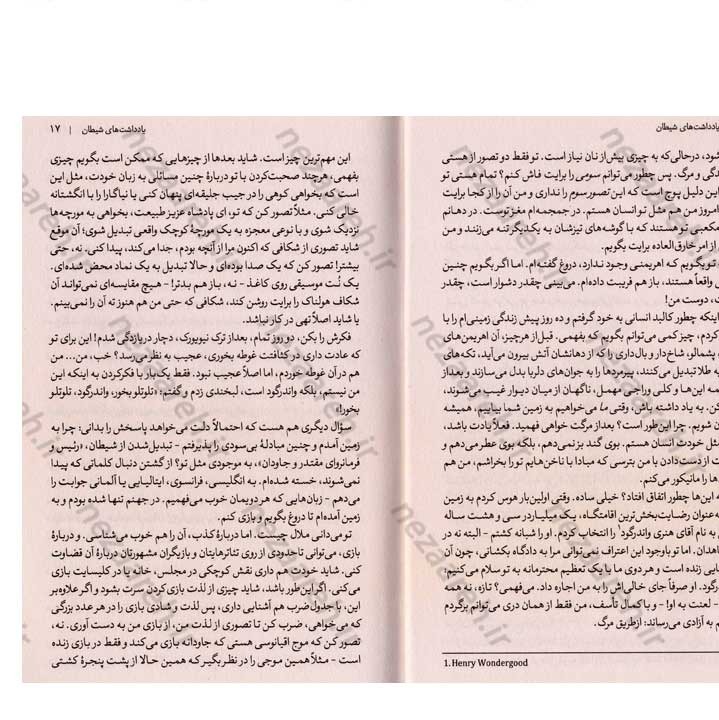 یادداشت‌های شیطان
شود، درحالی‌که به چیزی بیش از نان نیاز است. تو فقط دو تصور از هستی
دگی و مرگ. پس چطور می‌توانم سومی را برایت فاش کنم؟ تمام هستی تو
این دلیل پوچ است که این تصور سوم را نداری و من آن را از کجا برایت
امروز من هم مثل تو انسان هستم. در جمجمه‌ام مغز توست. در دهانم
مکعبی تو هستند که با گوشه‌های تیزشان به یکدیگر تنه می‌زنند و من
از امر خارق‌العاده برایت بگویم.
تو بگویم که اهریمنی وجود ندارد، دروغ گفته‌ام. اما اگر بگویم چنین
واقعاً هستند، باز هم فریب داده‌ام. می‌بینی چقدر دشوار است، چقدر
دوست من!
اینکه چطور کالبد انسانی به خود گرفتم و ده روز پیش زندگی زمینی‌ام را با
کردم، چیز کمی می‌توانم بگویم که بفهمی. قبل از هرچیز، آن اهریمن‌های
پشمالو، شاخ‌دار و بال‌داری را که از دهانشان آتش بیرون می‌آید، تکه‌های
به طلا تبدیل می‌کنند، پیرمردها را به جوان‌های دلربا بدل می‌سازند و بعد از
مه این‌ها و کلی وراجی مهمل، ناگهان از میان دیوار غیب می‌شوند،
کن. به یاد داشته باش، وقتی ما می‌خواهیم به زمین شما بیاییم، همیشه
ن شویم. چرا این‌طور است؟ بعد از مرگت خواهی فهمید. فعلاً یادت باشد،
مثل خودت انسان هستم. بوی گند بز نمی‌دهم، بلکه بوی عطر می‌دهم و
ت از دست‌دادن با من بترسی که مبادا با ناخن‌هایم تو را بخراشم، من هم
ها را مانیکور می‌کنم.
این‌ها چطور اتفاق افتاد؟ خیلی ساده. وقتی اولین‌بار هوس کردم به زمین
به‌عنوان رضایت‌بخش‌ترین اقامتگاه، یک میلیاردر سی و هشت ساله
به نام آقای هنری واندرگود¹ را انتخاب کردم. او را شبانه کشتم - البته نه در
اهدان. اما تو باوجود این اعتراف نمی‌توانی مرا به دادگاه بکشانی، چون آن
یی زنده است و هردوی ما با یک تعظیم محترمانه به تو سلام می‌کنیم:
رگود. او صرفاً جای خالی‌اش را به من اجاره داد. می‌فهمی؟ تازه، نه همه
- لعنت به او! - و با کمال تأسف، من فقط از همان دری می‌توانم برگردم
م به آزادی می‌رساند: ازطریق مرگ.
1. Henry Wondergood
یادداشت‌های شیطان | ۱۷
این مهم‌ترین چیز است. شاید بعدها از چیزهایی که ممکن است بگویم چیزی
بفهمی، هرچند صحبت‌کردن با تو دربارهٔ چنین مسائلی به زبان خودت، مثل این
است که بخواهی کوهی را در جیب جلیقه‌ای پنهان کنی یا نیاگارا را با انگشتانه
خالی کنی. مثلاً تصور کن که تو، ای پادشاه عزیز طبیعت، بخواهی به مورچه‌ها
نزدیک شوی و با نوعی معجزه به یک مورچهٔ کوچک واقعی تبدیل شوی؛ آن موقع
شاید تصوری از شکافی که اکنون مرا از آنچه بودم، جدا می‌کند، پیدا کنی. نه، حتی
بیشتر! تصور کن که یک صدا بوده‌ای و حالا تبدیل به یک نماد محض شده‌ای،
یک نُت موسیقی روی کاغذ - نه، باز هم بدتر! - هیچ مقایسه‌ای نمی‌تواند آن
شکاف هولناک را برایت روشن کند، شکافی که حتی من هم هنوز ته آن را نمی‌بینم.
یا شاید اصلاً تهی در کار نباشد.
فکرش را بکن، دو روز تمام، بعد از ترک نیویورک، دچار دریازدگی شدم! این برای تو
که عادت داری در کثافتت غوطه بخوری، عجیب به نظر می‌رسد؟ خب، من... من
هم در آن غوطه خوردم، اما اصلاً عجیب نبود. فقط یک‌بار با فکر کردن به اینکه این
من نیستم، بلکه واندرگود است، لبخندی زدم و گفتم: «تلوتلو بخور، واندرگود، تلوتلو
بخور!»
سؤال دیگری هم هست که احتمالاً دلت می‌خواهد پاسخش را بدانی: چرا به
زمین آمدم و چنین مبادلهٔ بی‌سودی را پذیرفتم - تبدیل‌شدن از شیطان، «رئیس و
فرمانروای مقتدر و جاودان»، به موجودی مثل تو؟ از گشتن دنبال کلماتی که پیدا
نمی‌شوند، خسته شده‌ام. به انگلیسی، فرانسوی، ایتالیایی یا آلمانی جوابت را
می‌دهم - زبان‌هایی که هر دویمان خوب می‌فهمیم. در جهنم تنها شده بودم و به
زمین آمده‌ام تا دروغ بگویم و بازی کنم.
تو می‌دانی ملال چیست. اما دربارهٔ کذب، آن را هم خوب می‌شناسی. و دربارهٔ
بازی، می‌توانی تاحدودی از روی تئاترهایتان و بازیگران مشهورتان دربارهٔ آن قضاوت
کنی. شاید خودت هم داری نقش کوچکی در مجلس، خانه یا در کلیسایت بازی
می‌کنی. اگر این‌طور باشد، شاید چیزی از لذت بازی کردن سرت بشود و اگر علاوه‌بر
این، با جدول‌ضرب هم آشنایی داری، پس لذت و شادی بازی را در هر عدد بزرگی
که می‌خواهی، ضرب کن تا تصوری از لذت من، از بازی من به دست آوری. نه،
تصور کن که موج اقیانوسی هستی که جاودانه بازی می‌کند و فقط در بازی زنده
است - مثلاً همین موجی را در نظر بگیر که همین حالا از پشت پنجرهٔ کشتی